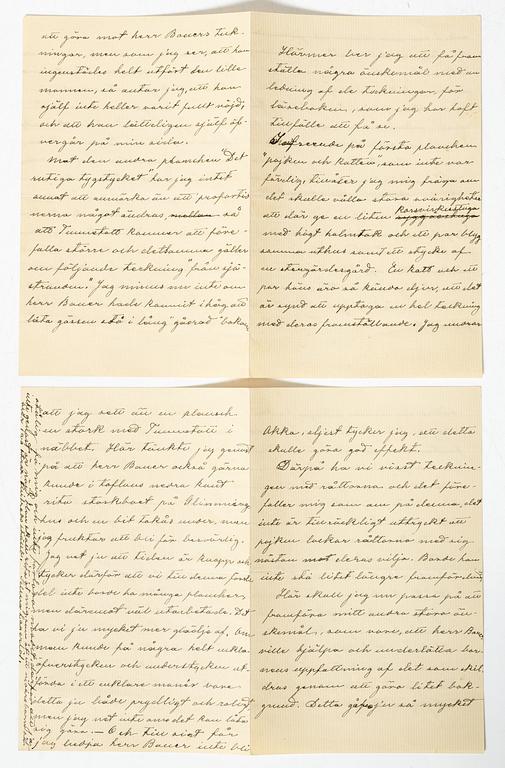 att göra mot herr Bauers teck-
ningar, men som jag ser, att han
ingenstädes helt utfört den lille
mannen, så antar jag, att han
själf inte heller varit fullt nöjd,
och att han sätteligen själf öf-
vergår på min sida.
Mot den andra planschen "Det
rutiga tygstycket" har jag intet
annat att anmärka än att proportio
nerna något ändras, mellan så
att Tummetott kommer att före-
falla större och detsamma gäller
om följande teckning "från sjö-
stranden." Jag minns nu inte om
herr Bauer hade kommit i håg att
låta gässen stå i lång "gåsrad" bakom
Härmed ber jag att få fram
ställa några önskemål med an
ledning af de teckningar för
läseboken, som jag har haft
tillfälle att få se.
I afseende på första planschen
"pojken och katten", som inte var
färdig, tillåter jag mig fråga om
det skulle vålla stora svårigheter
att där ge en liten korsvirkesstuga
med högt halmtak och ett par
samma uthus samt ett stycke af
en stengärdesgård. En katt och ett
par höns äro så kända djur, att det
är synd att upptaga en hel teckning
med deras framställande. Jag anser
att jag sett än en plansch
en stork med Tummetott i
näbbet. Här tänkte jag genast
på att herr Bauer också gärna
kunde i taflans nedra kant
rita storkboet på Glimminge
hus och en bit takås under, men
jag fruktar att bli för besvärlig.
Jag vet ju att tiden är knapp och
tycker därför att vi till denna förde
del inte borde ha många planscher,
men däremot väl utarbetade. Det
ha vi ju mycket mer glädje af, Om
men kunde få några helt enkla
öfverstycken och understycken ut
förda i ett enklare manér vore
detta ju både prydligt och roligt,
men jag vet inte om det kan låta
sig göra. — Och till sist får
jag bedja herr Bauer inte bli
Akka, eljest tycker jag, att detta
skulle göra god effekt.
Därpå ha vi visst tecknin-
gen med råttorna och det före-
faller mig som om på denna, det
inte är tillräckligt uttryckt att
pojken lockar råttorna med sig
nästan mot deras vilja. Borde han
inte stå litet längre framför dem
Här skall jag nu passa på att
framföra mitt andra stora ön-
skemål, som vore, att herr Bauer
ville hjälpa och underlätta bar-
nens uppfattning af det som skil
dras genom att göra litet bak-
grund. Detta gäfves ju så mycket